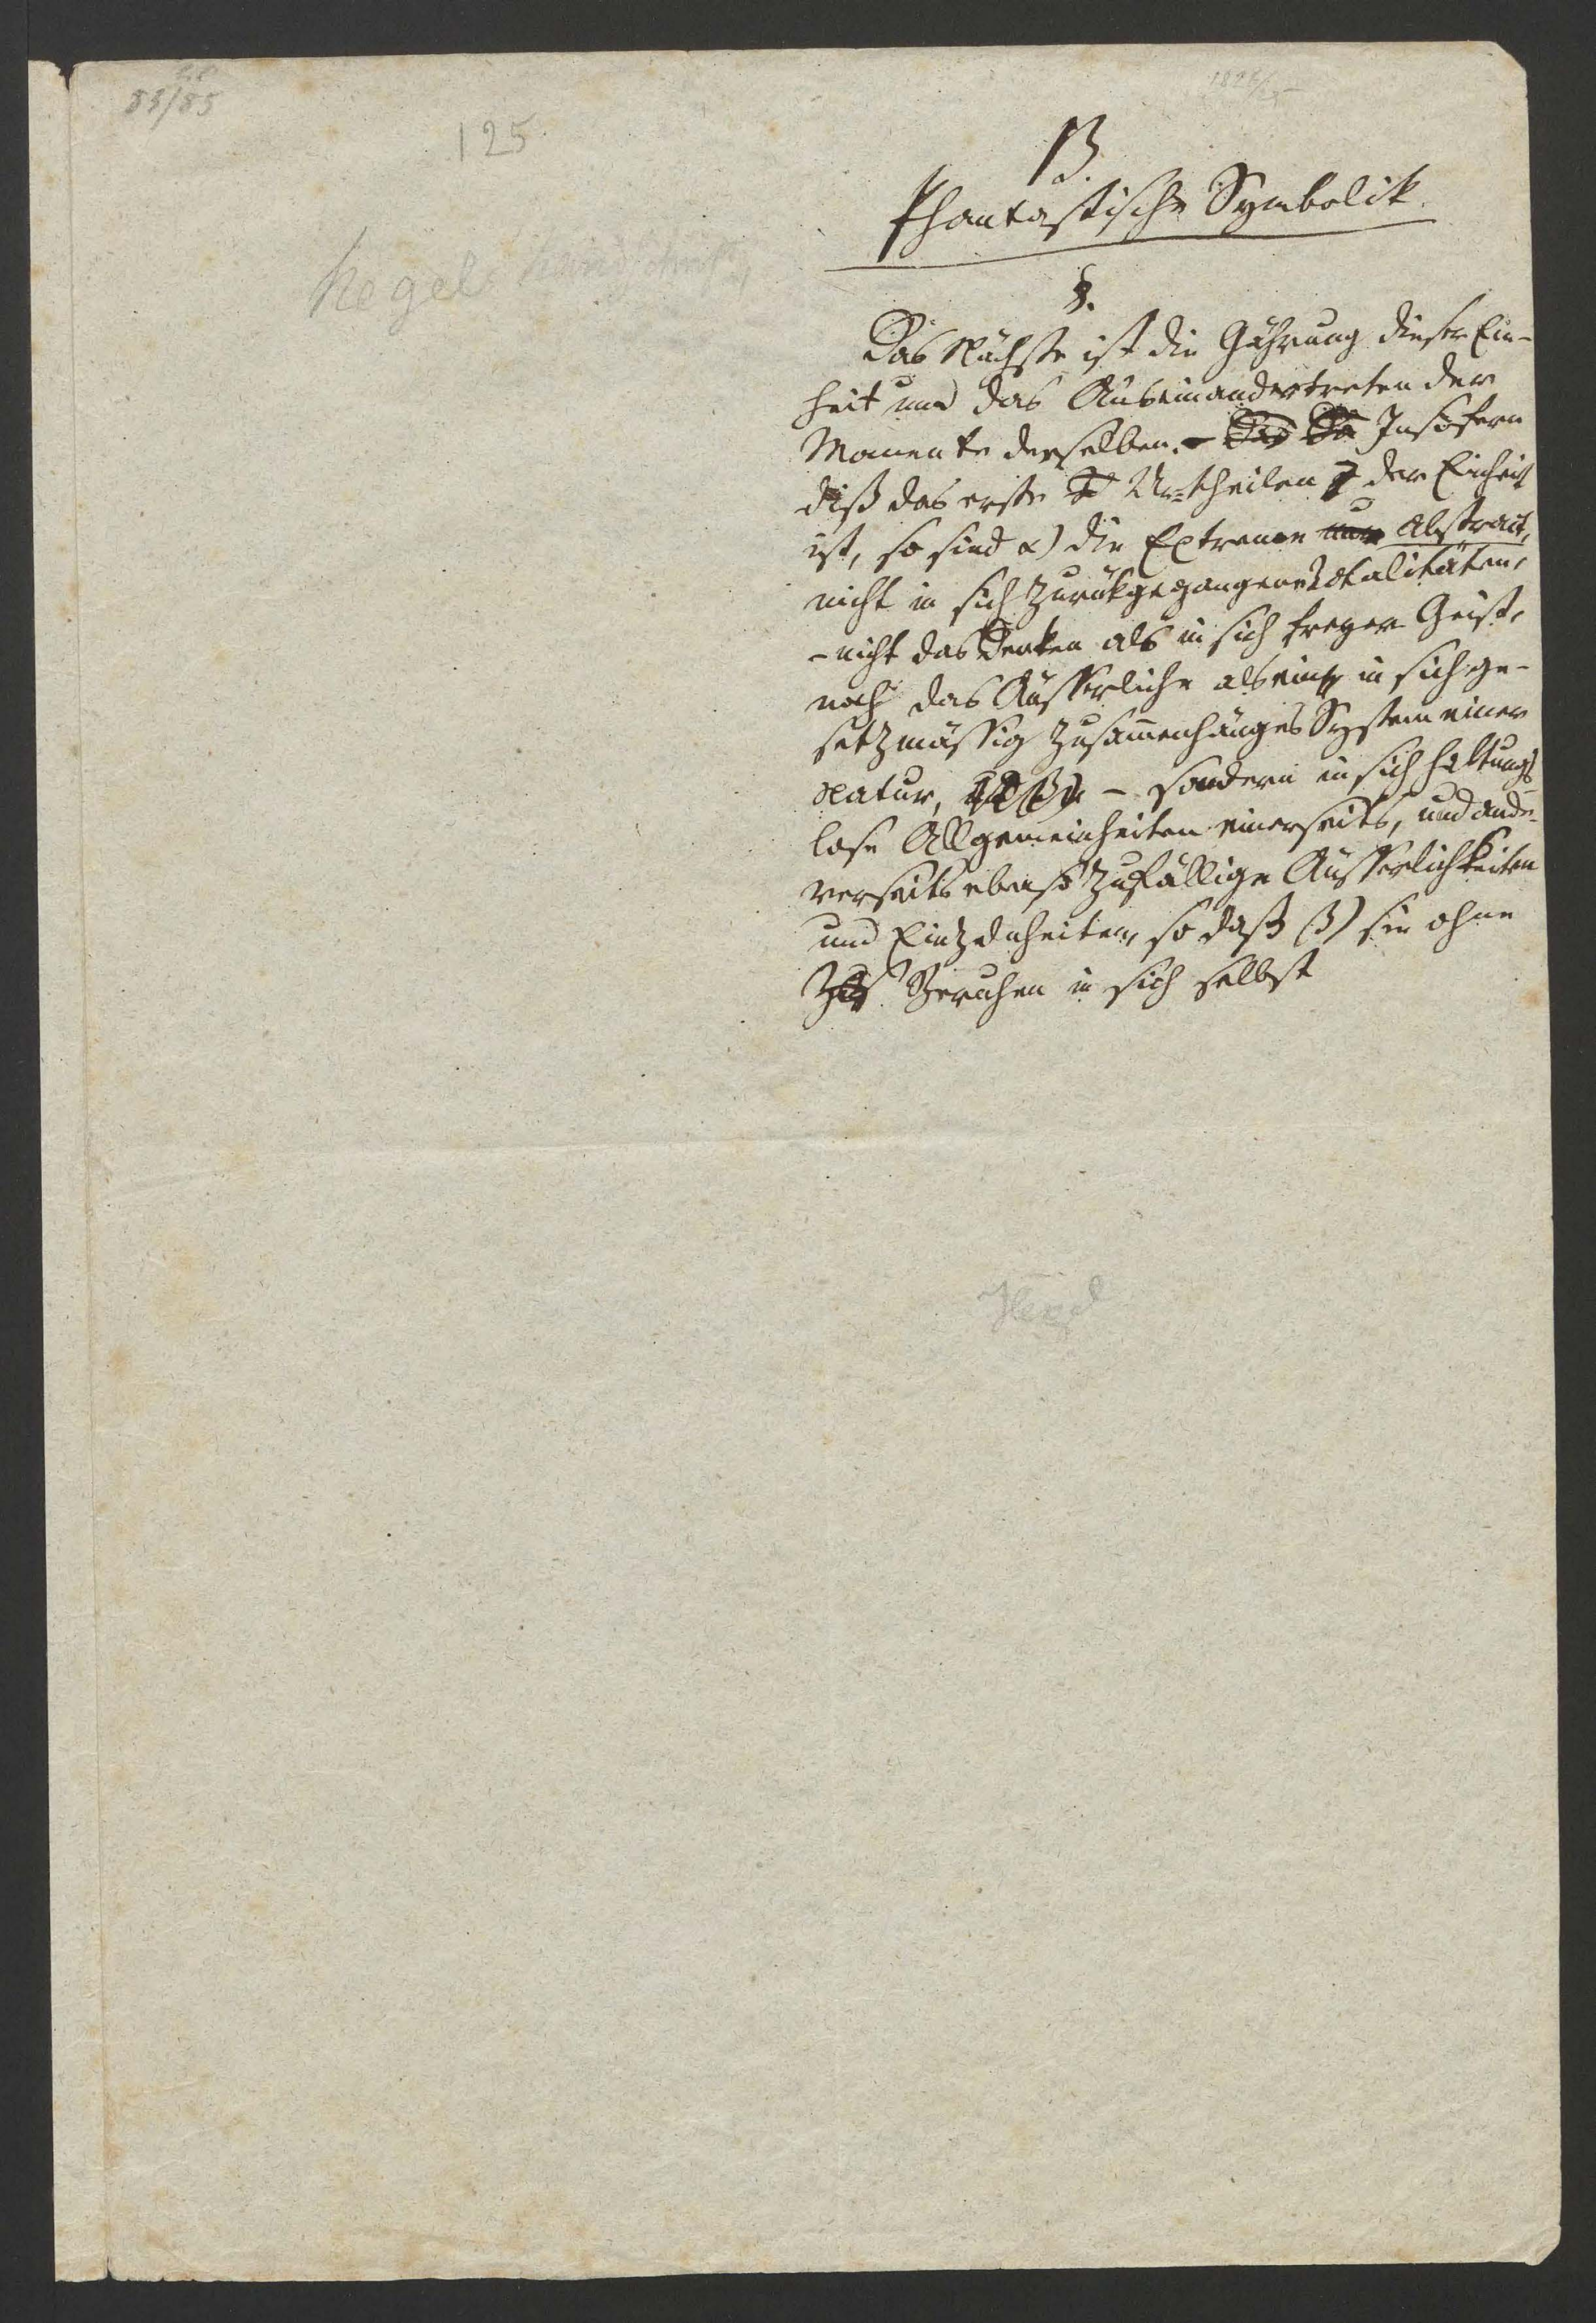 85/85
125
B.
Phantastische Symbolik.
Hegels
§.
Das Nächste ist die Gährung dieser Ein-
heit und das Auseinandertreten der
Momente derselben. – Das Da Insofern
diß das erste Ur-theilen der Einheit
ist, so sind α) die Extreme nur abstract,
nicht in sich zurükgegangene Totalitäten,
– nicht das Denken als in sich freyer Geist,
noch das Äusserliche als ein in sich ge-
setzmässig zusamenhänges System einer
Natur, – sondern in sich haltungs
lose Allgemeinheiten einerseits, und ande-
rerseits ebenso zufällige Äusserlichkeiten
und Einzelnheiten, so daß β) sie ohne
Beruhen in sich selbst
Hegel